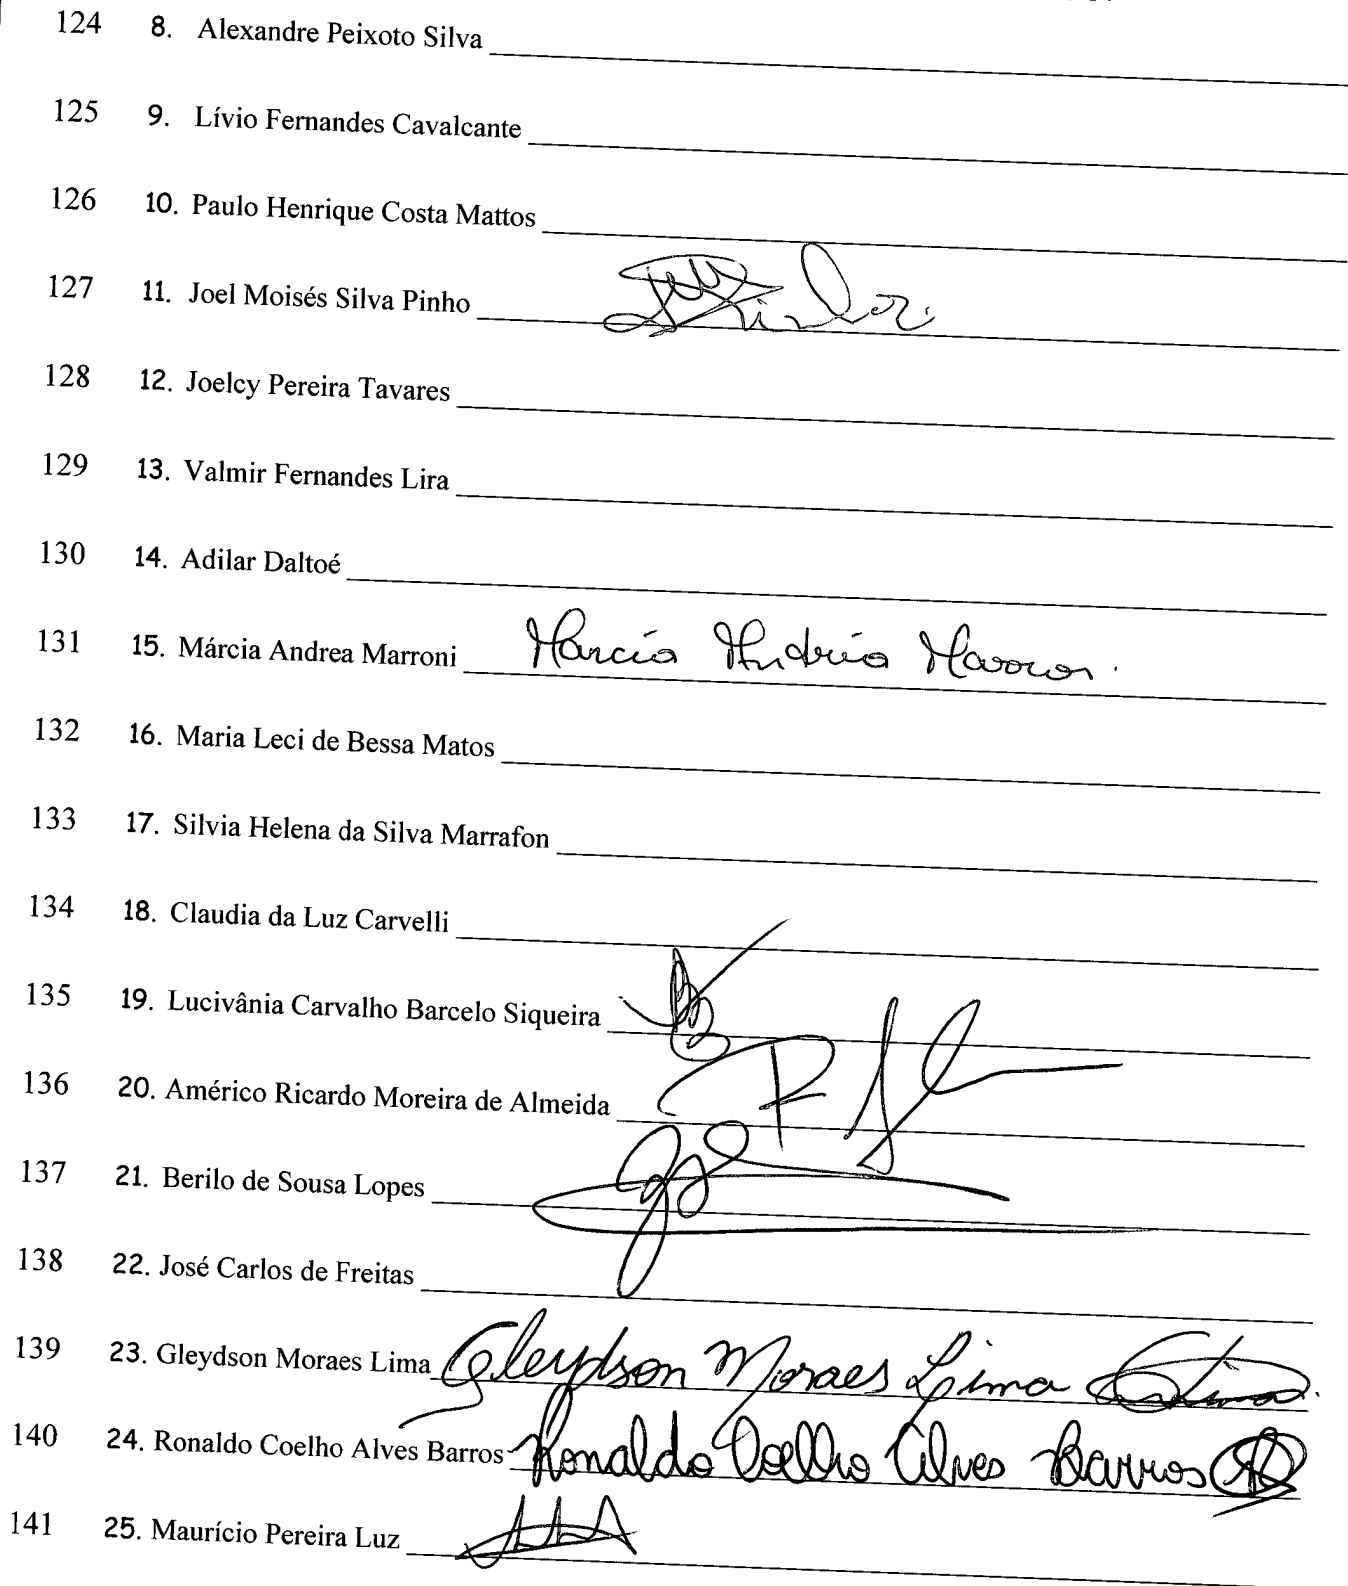 124 8. Alexandre Peixoto Silva
125 9. Lívio Fernandes Cavalcante
126 10. Paulo Henrique Costa Mattos
127 11. Joel Moisés Silva Pinho
128 12. Joelcy Pereira Tavares
129 13. Valmir Fernandes Lira
130 14. Adilar Daltoé
131 15. Márcia Andrea Marroni Márcia Andréia
132 16. Maria Leci de Bessa Matos
133 17. Silvia Helena da Silva Marrafon
134 18. Claudia da Luz Carvelli
135 19. Lucivânia Carvalho Barcelo Siqueira
136 20. Américo Ricardo Moreira de Almeida
137 21. Berilo de Sousa Lopes
138 22. José Carlos de Freitas
139 23. Gleydson Moraes Lima Gleydson Moraes Lima
140 24. Ronaldo Coelho Alves Barros Ronaldo Coelho Alves Barros
141 25. Maurício Pereira Luz